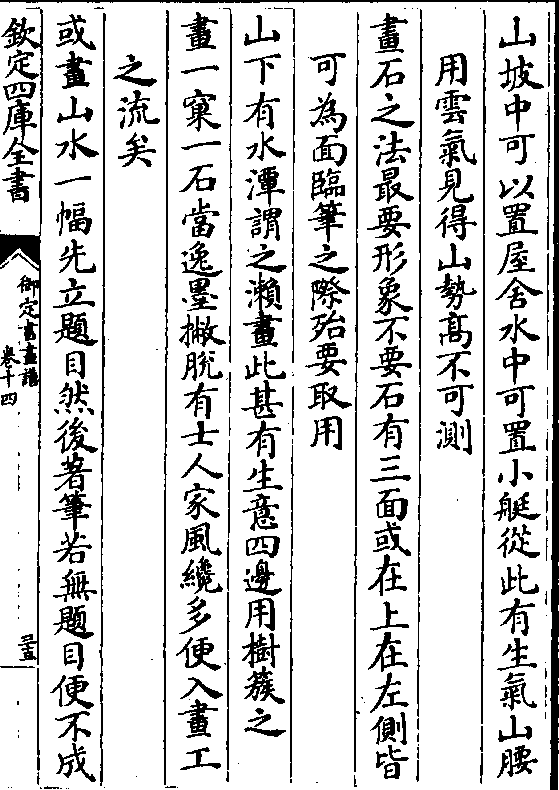 山坡中可以置屋舍水中可置小艇從此有生氣山腰
用雲氣見得山勢高不可測
畫石之法最要形象不要石有三面或在上在左側皆
可為面臨筆之際殆要取用
山下有水潭謂之瀨畫此甚有生意四邊用樹簇之
畫一窠一石當逸墨撇脫有士人家風纔多便入畫工
之流矣
或畫山水一幅先立題目然後著筆若無題目便不成
欽定四庫全書
御定書畫譜
卷十四